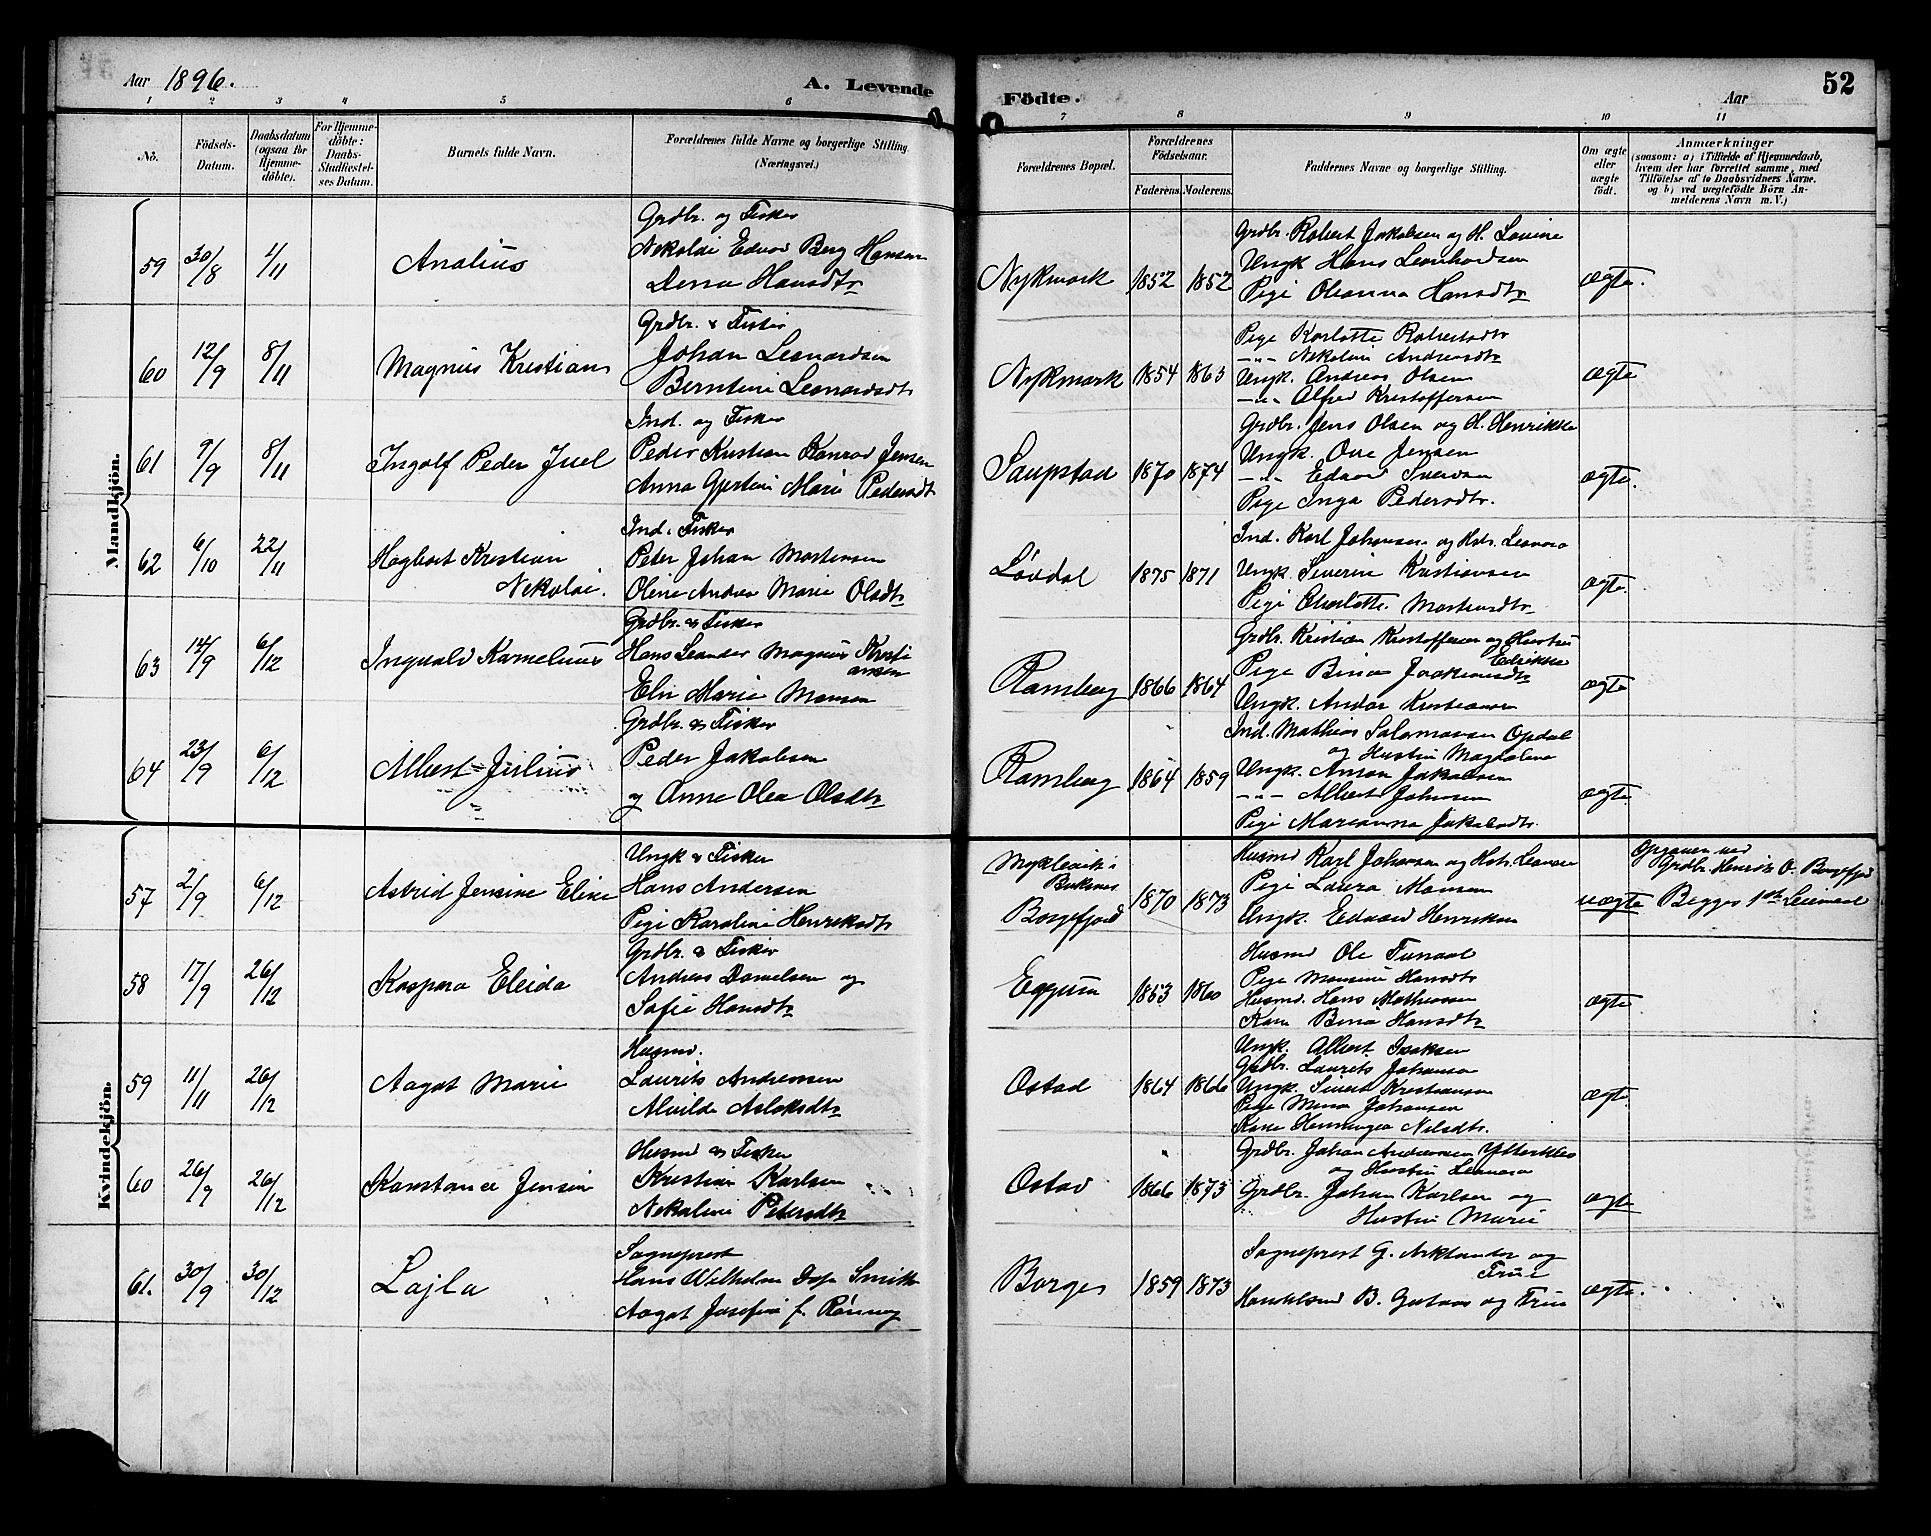 Aar 1896.
A. Levende
Födte.
Aar
52
1 2 3 4 5 6 7 8 9 10 11
No.
Födsels-
Datum.
Daabsdatum
(ogsaa for
Hjemme-
døbte).
For Hjemme-
døbte:
Daabs-
Stadfæstel-
ses Datum.
Barnets fulde Navn.
Forældrenes fulde Navne og borgerlige Stilling
(Næringsvei.)
Forældrenes Bopæl.
Forældrenes
Födselsaar.
Faderens.
Moderens.
Faddernes Navne og borgerlige Stilling.
Om ægte
eller
uægte
født.
Anmærkninger
(saasom: a) i Tilfælde af Hjemmedaab,
hvem der har forrettet samme, med
Tilföielse af to Daabsvidners Navne,
og b) ved uægtefödte Börn An-
melderens Navn m. V.)
Mandkjön.
59 30/8 1/11
Analius
Grdbr. og Fisker
Nekolai Edvard Berg Hansen
Hansdtr
Nykmark 1852 1852
Grdbr. Robert Jakobsen og H. Lovine
Ungk Hans Leonhardsen
Pige Oleanna Hansdtr
ægte.
60 12/9 8/11
Magnus Kristian
Grdbr. & Fisker
Johan Leonardsen
Berntine Leonardsdtr
Nykmark 1854 1863
Pige Karlotte Robertsdtr
-"- Nekoline Andreasdtr
Ungk. Andreas Olsen
-"- Alfred Kristoffersen
ægte
61 9/9 8/11
Ingolf Peder Juel
Ind. og Fisker
Peder Kristian Konrad Jensen
Anna Marie Pedersdtr
Saupstad 1870 1874
Grdbr. Jens Olsen og H. Henrikke
Ungk. Ove Jensen
-"- Edvard
Pige Inga Pedersdtr.
ægte.
62 6/10 22/11
Hagbart Kristian
Nekolai.
Ind. Fisker
Peter Johan Mortensen
Oline Andrea Marie Olsdtr
Lövdal 1875 1871
Ind. Karl Johansen og Hstr. Leonora
Ungk. Severin Kristiansen
Pige Charlotte Mortensdtr
ægte.
63 14/9 6/12
Ingvald Kornelius
Grdbr. & Fisker
Hans Leander Magnus Kristi
ansen
Marie Monsen
Ramberg 1866 1864
Grdbr. Kristian Kristoffersen og Hustru
Edrikke
Pige Bina
Ungk. Andor Kristiansen
ægte
64 23/9 6/12
Albert Julius
Grdbr. & Fisker
Peder Jakobsen
og Anne Olea Olsdtr
Ramberg 1864 1859
Ind. Mathias Salamonsen Opdal
og Hustru Magdalena
Ungk. Anton Jakobsen
-"- Albert Johansen
Pige Marianna Jakobsdtr.
ægte
Kvindekjön.
57 2/9 6/12
Astrid Jensine Eline
Ungk & Fisker
Hans Andersen
Pige Karoline Henriksdtr
Myklevik i
Buksnes
Borgefjord 1870 1873
Husmd Karl Johansen og Hstr. Leonora
Pige Laura Monsen
Ungk. Edvard Henriksen
uægte
Opgaven ved
Grdbr. Henrik O. Borgefjord
Begges 1ste Leiermaal
58 17/9 26/12
Kaspara Eleida
Grdbr. & Fisker
Andreas Danielsen og
Sofie Hansdtr
Eggum 1853 1860
Husmd Ole
Pige Monsine Hansdtr
Husmd. Hans Mathiassen
Kone Bina Hansdtr
ægte
59 11/11 26/12
Aagot Marie
Husmd.
Laurits Andreassen
Alvilde Aslaksdtr
Ostad 1864 1866
Ungk. Albert Isaksen
Grdbr. Laurits Johansen
Ungk. Sivert Kristiansen
Pige Mina Johansen
Kone Henningea Nilsdtr.
ægte.
60 26/9 26/12
Konstance Jensine
Husmd & Fisker
Kristian Karlsen
Nekoline Petersdtr
Ostad 1866 1873
Grdbr. Johan Andreassen Ytterklev
og Hustru Leonora
Grdbr. Johan Karlsen og
Hustru Marie
ægte
61. 30/9 30/12
Lajla
Sogneprest
Hans Wilhelm Dop Smith
Aagot Josefine f. Rönning
Borges 1859 1873
Sogneprest G. Arktander og
Frue
Handelsmd B. og Frue
ægte.